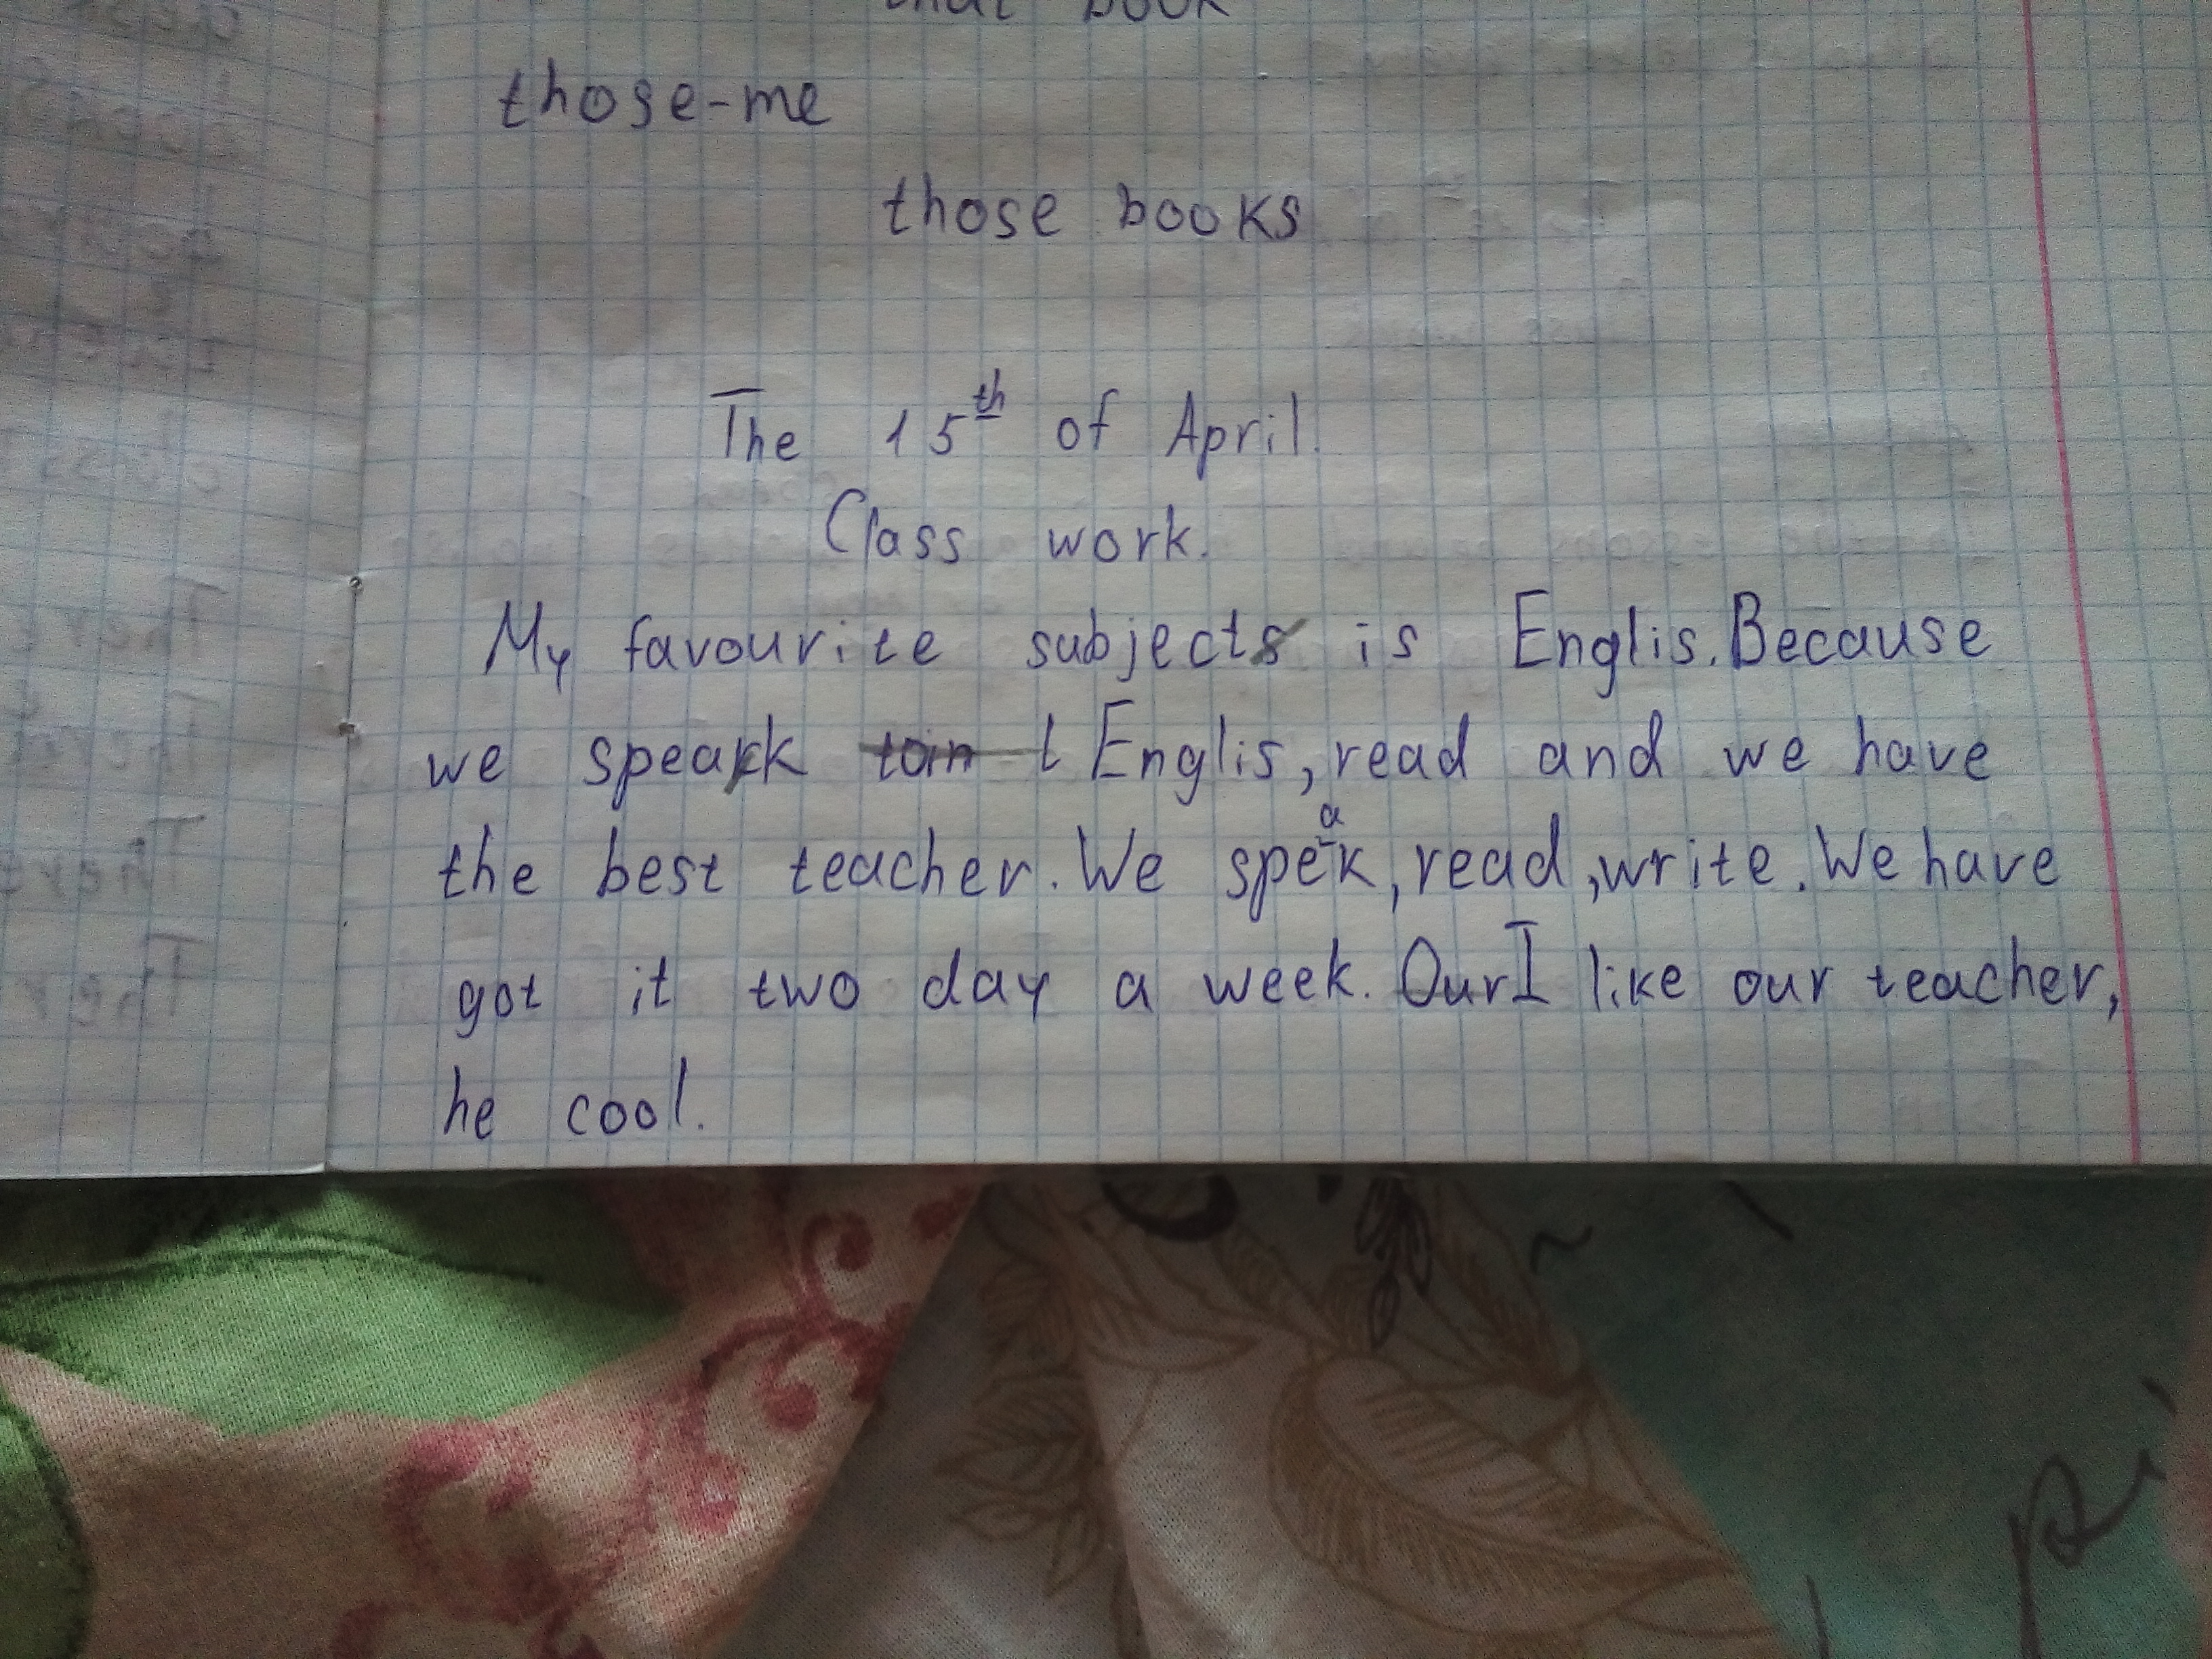 that book
those-me
those books
The 15th of April.
Class work.
My favourite subject is Englis. Because
we speak Englis, read and we have
the best teacher. We speak, read, write. We have
got it two day a week. Our I like our teacher,
he cool.